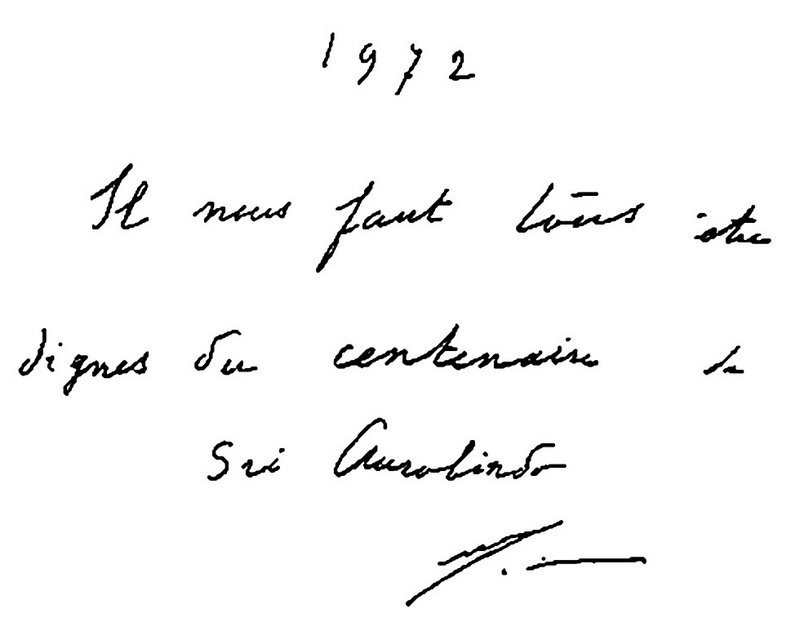 1972
Il nous faut tous être
dignes du centenaire de
Sri Aurobindo